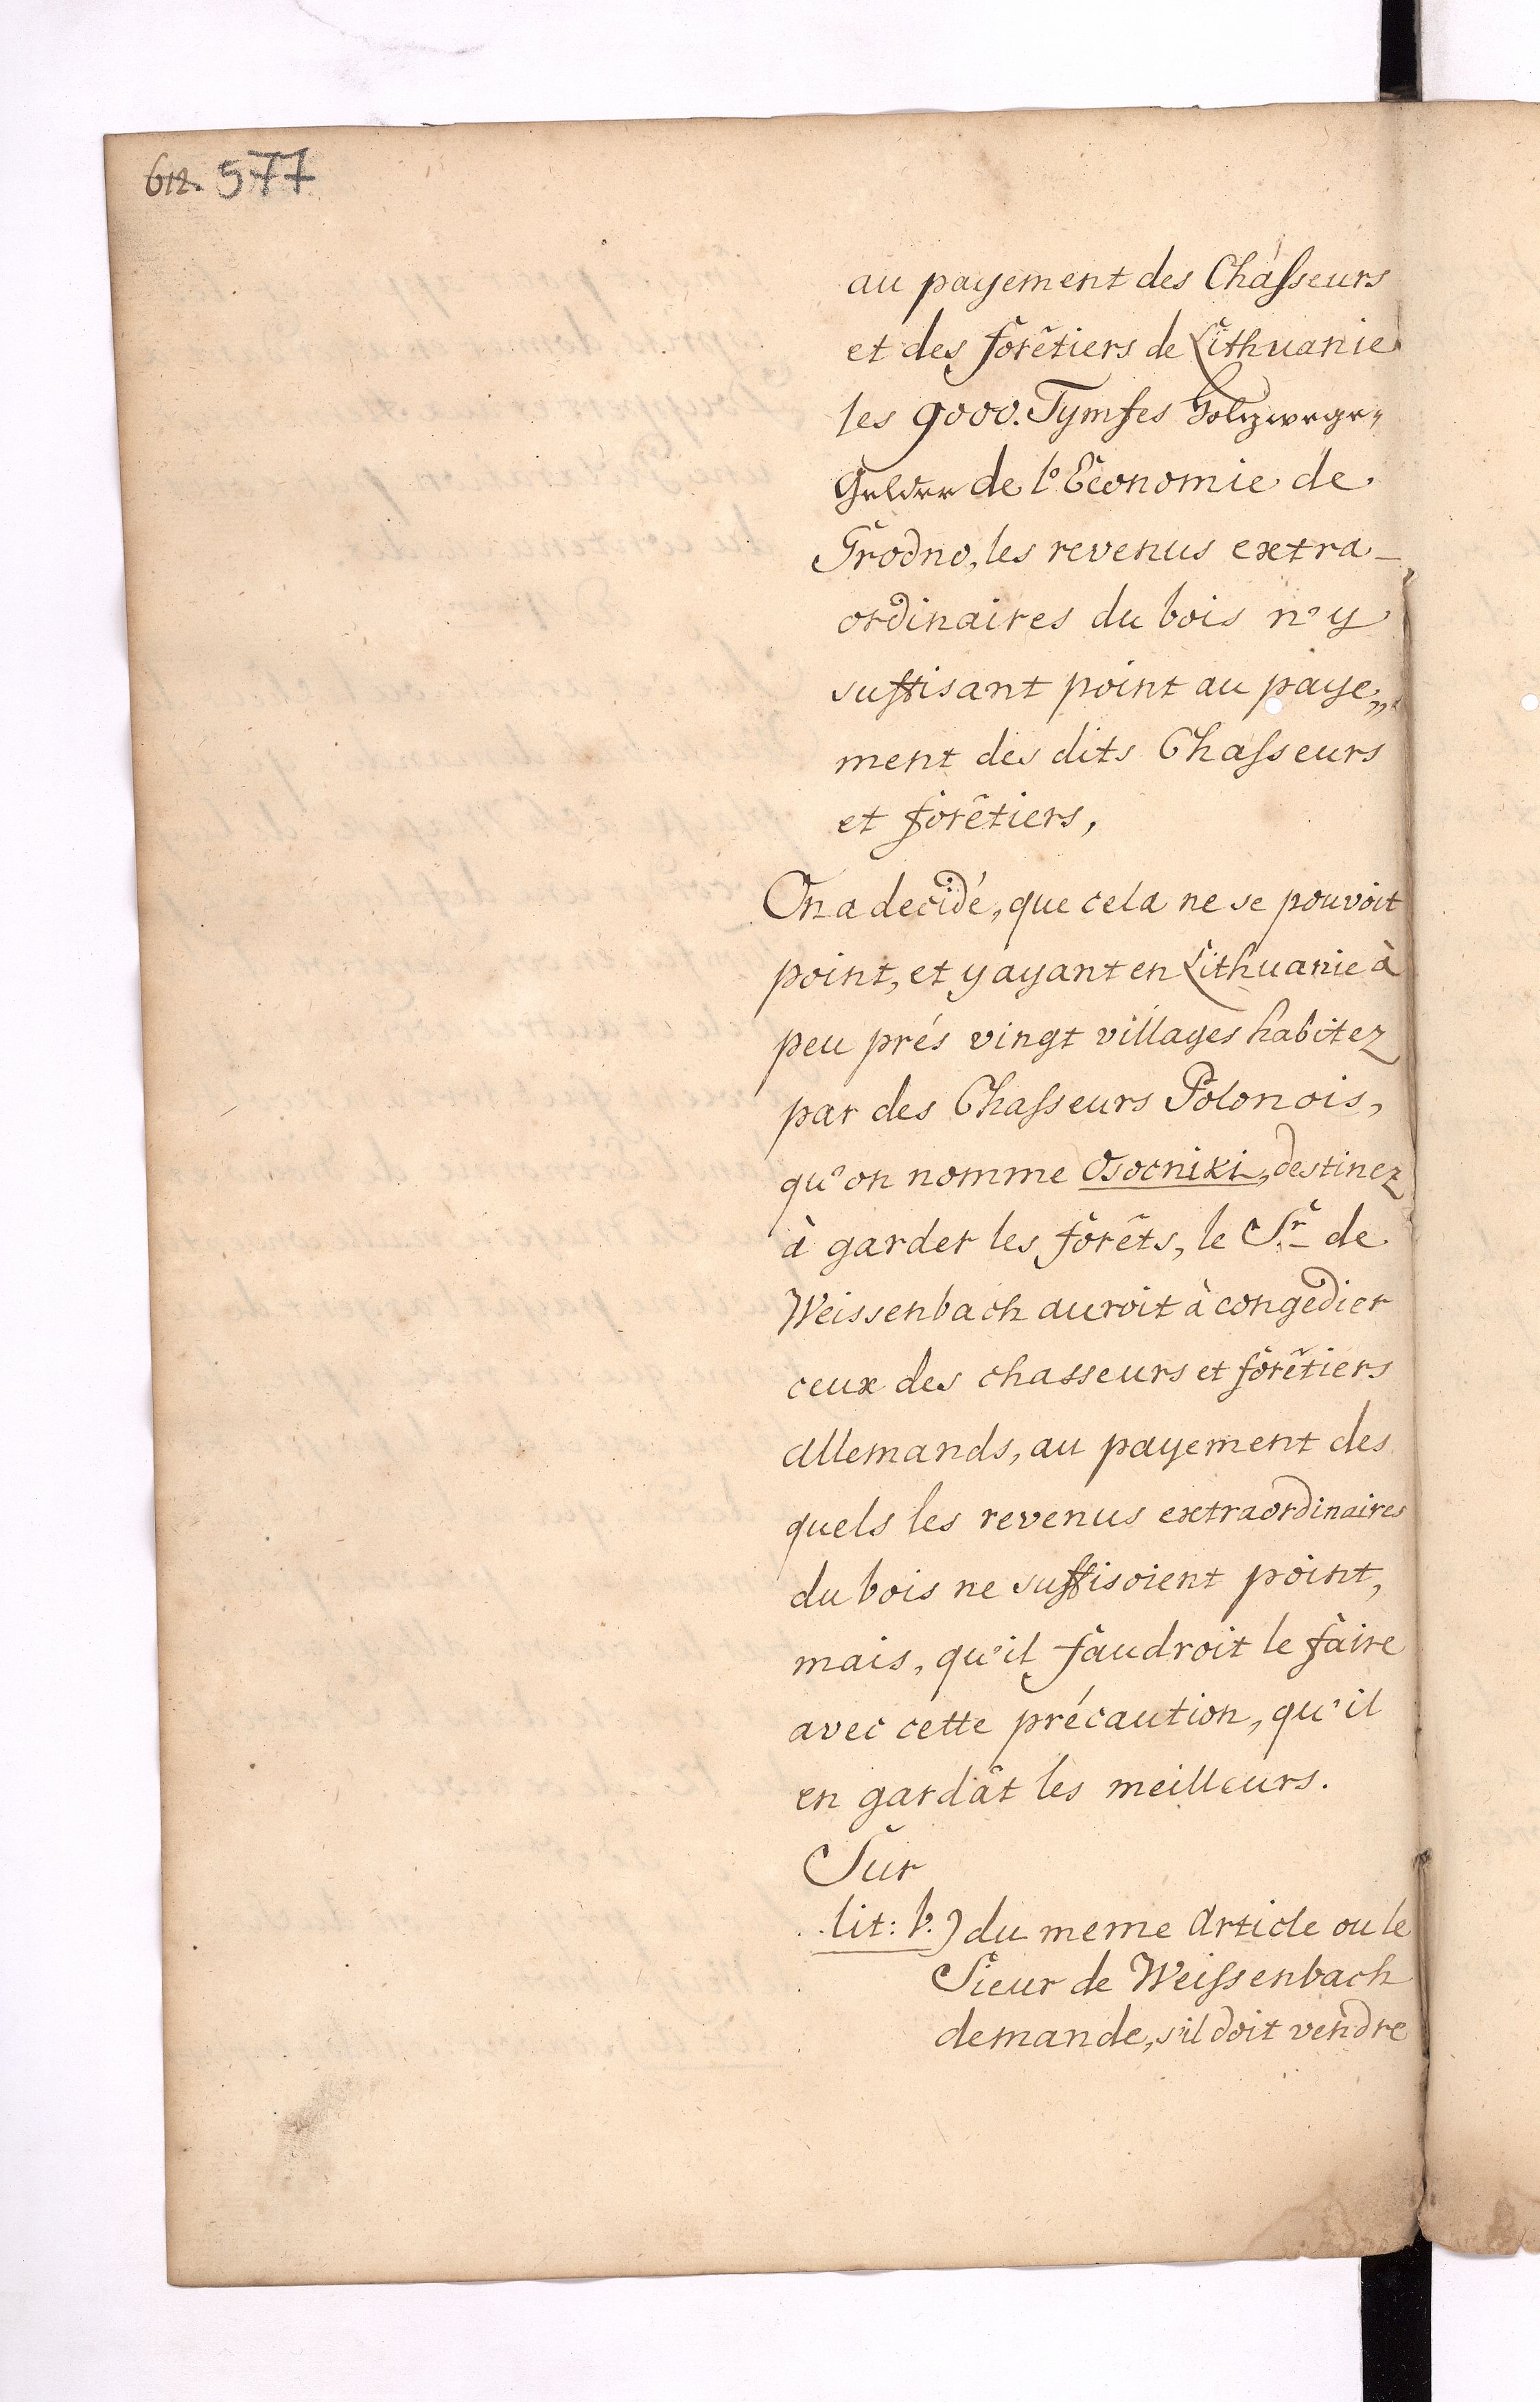 612. 577
au payement des Chasseurs
et des forêtiers de Lithuanie
les 9000. Tymfes Holzwege„
Gelder de l'Economie de
Grodno, les revenus extra-
ordinaires du bois n'y
suffisant point au paye„
ment des dits Chasseurs
et forêtiers,
On a decidé, que cela ne se pouvoit
point, et y ayant en Lithuanie à
peu prés vingt villages habitez
par des Chasseurs Polonois,
qu'on nomme Osocniki, destinez
à garder les forêts, le Sr. de
Weissenbach auroit à congedier
ceux des chasseurs et forêtiers
allemands, au payement des
quels les revenus extraordinaires
du bois ne suffisoient point,
mais, qu'il faudroit le faire
avec cette précaution, qu'il
en gardât les meilleurs.
Sur
lit: b.) du meme Article ou le
Sieur de Weissenbach
demande, s'il doit vendre